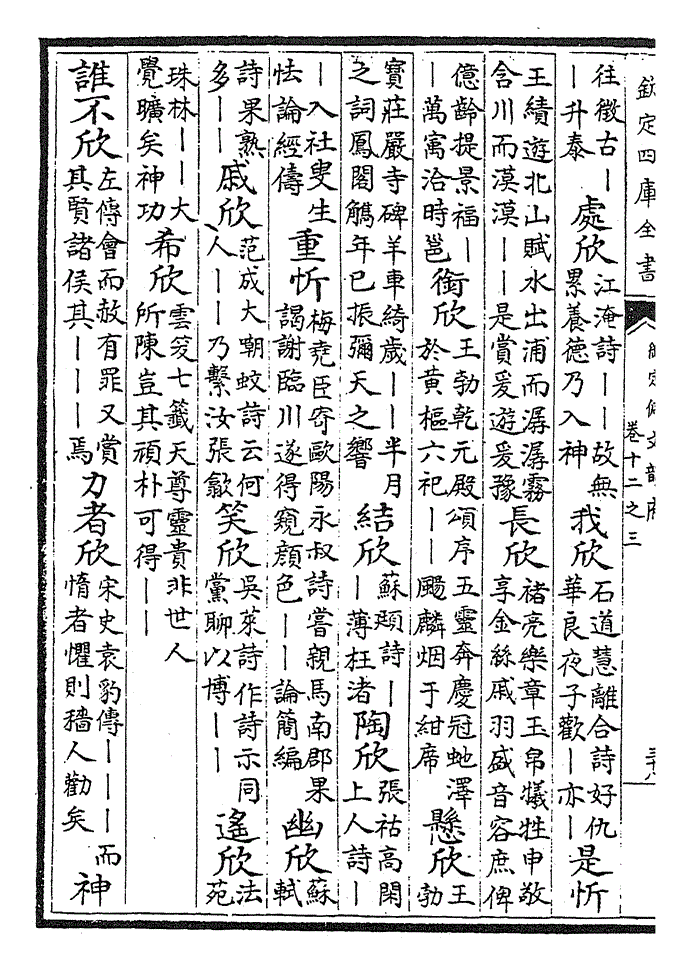 欽定四庫全書
卷十二之三
往徵古丨丨升泰 處欣 江淹詩丨丨故無累養德乃入神 我欣 石道慧離合詩好仇華良夜子歡丨亦丨 是忻
王績遊北山賦水出浦而潺潺霧含川而漠漠丨丨是賞爰遊爰豫 長欣 禇亮樂章玉帛犧牲申敬享金絲戚羽盛音容庶俾
億齡提景福丨丨萬寓洽時邕 銜欣 王勃乾元殿頌序五靈奔慶冠虵澤於黄樞六祀丨丨颺麟烟于紺席 懸欣 王勃
寳莊嚴寺碑羊車綺歲丨丨半月之詞鳳閣觿年已振彌天之響 結欣 蘇頲詩丨丨薄枉渚 陶欣 張祜高閑上人詩丨
丨入社叟生怯論經儔 重忻 梅堯臣寄歐陽永叔詩嘗親馬南郡果謁謝臨川遂得窺顔色丨丨論簡編 幽欣 蘇軾
詩果熟多丨丨 戚欣 范成大嘲蚊詩云何人丨丨乃繫汝張歙 笑欣 吳萊詩作詩示同黨聊以博丨丨 遙欣 法苑
珠林丨丨大覺曠矣神功 希欣 雲笈七籤天尊靈貴非世人所陳豈其頑朴可得丨丨
誰不欣 左傳會而赦有罪又賞其賢諸侯其丨丨丨焉 力者欣 宋史袁豹傳丨丨丨而惰者懼則穡人勸矣 神